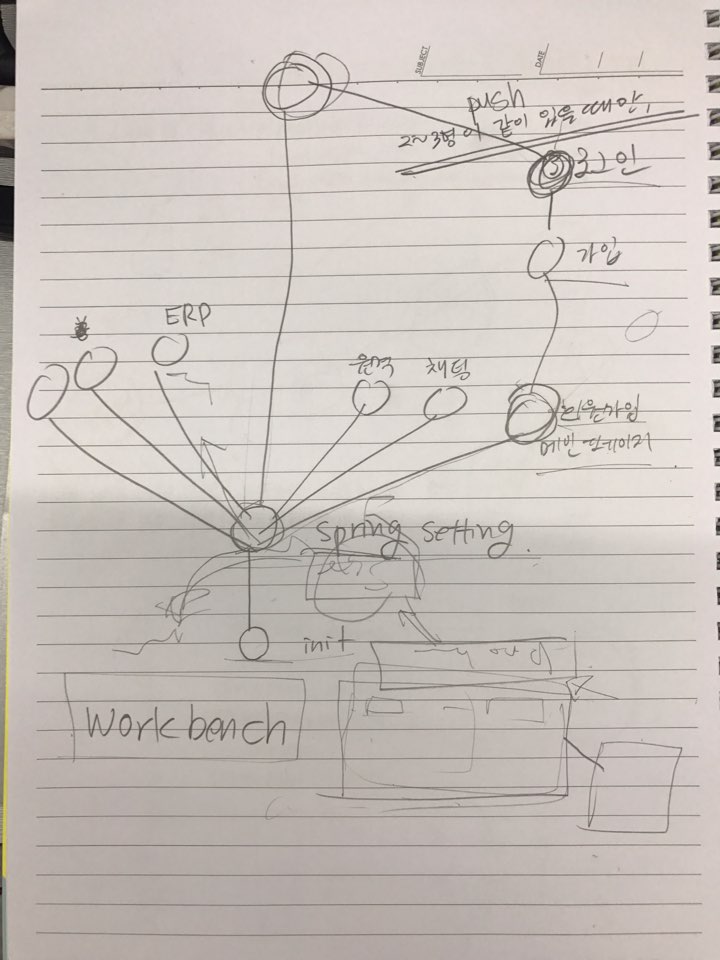 SUBJECT
DATE
push
2~3명이 끝이 났을 때
로그인
가입
ERP
원격
채팅
회원가입
메인 페이지
spring setting.
init
workbench